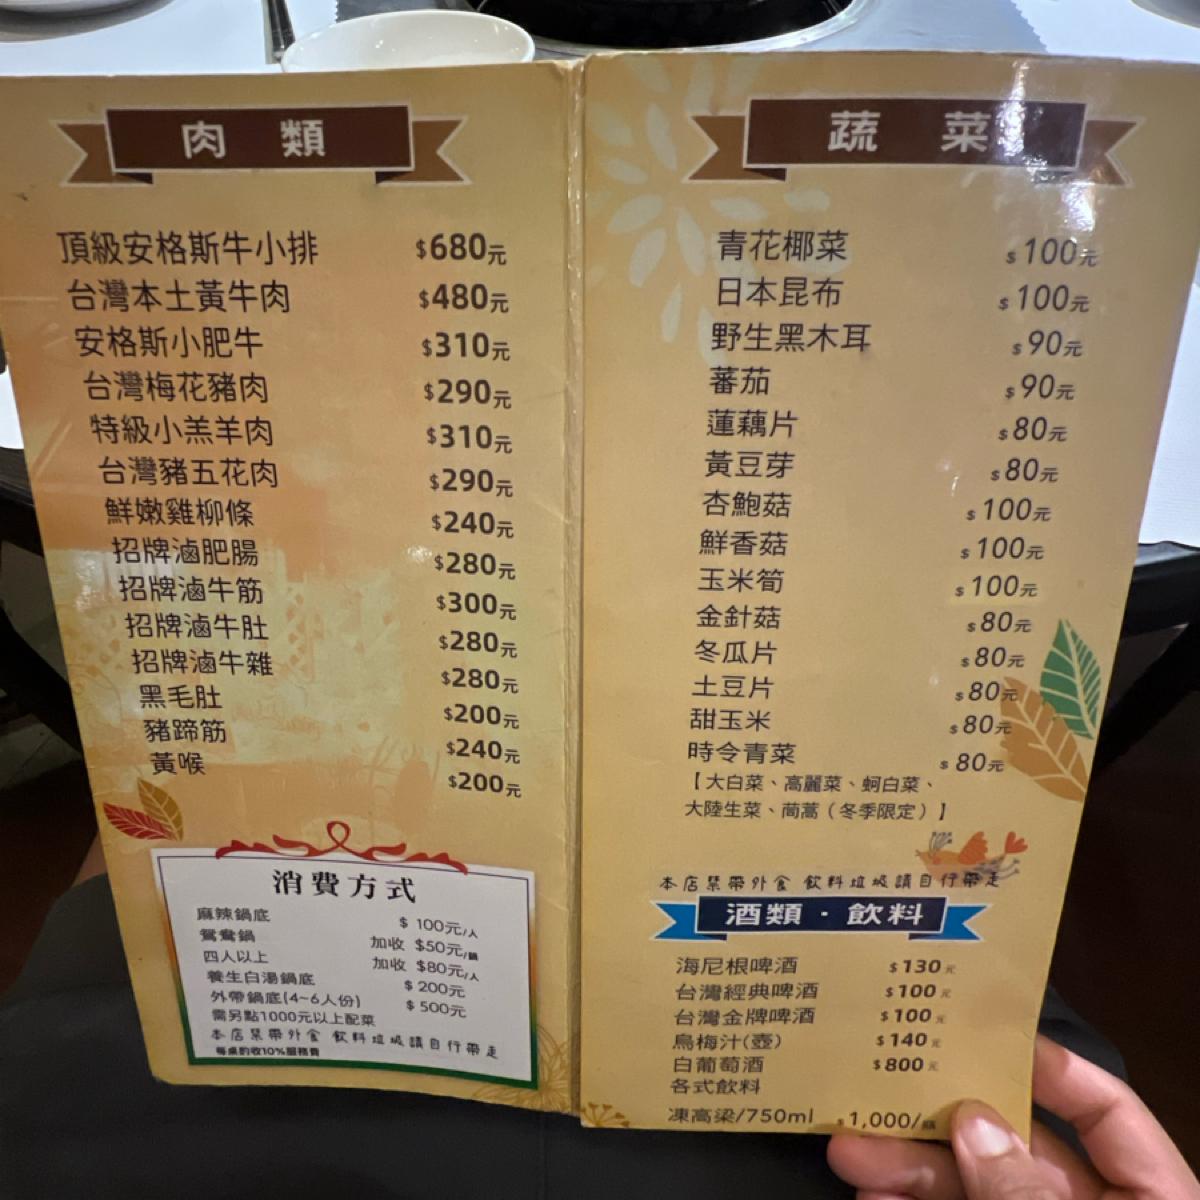 肉類
頂級安格斯牛小排 $680元
台灣本土黃牛肉 $480元
安格斯小肥牛 $310元
台灣梅花豬肉 $290元
特級小羔羊肉 $310元
台灣豬五花肉 $290元
鮮嫩雞柳條 $240元
招牌滷肥腸 $280元
招牌滷牛筋 $300元
招牌滷牛肚 $280元
招牌滷牛雜 $280元
黑毛肚 $200元
豬蹄筋 $240元
黃喉 $200元
消費方式
麻辣鍋底 $100元/人
鴛鴦鍋 加收 $50元/鍋
四人以上 加收 $80元/人
養生白湯鍋底 $200元
外帶鍋底(4~6人份) $500元
需另點1000元以上配菜
本店禁帶外食 飲料垃圾請自行帶走
每桌酌收10%服務費
蔬菜
青花椰菜 $100元
日本昆布 $100元
野生黑木耳 $90元
蕃茄 $90元
蓮藕片 $80元
黃豆芽 $80元
杏鮑菇 $100元
鮮香菇 $100元
玉米筍 $100元
金針菇 $80元
冬瓜片 $80元
土豆片 $80元
甜玉米 $80元
時令青菜 $80元
【大白菜、高麗菜、蚵白菜、
大陸生菜、茼蒿（冬季限定）】
本店禁帶外食 飲料垃圾請自行帶走
酒類·飲料
海尼根啤酒 $130元
台灣經典啤酒 $100元
台灣金牌啤酒 $100元
烏梅汁(壺) $140元
白葡萄酒 $800元
各式飲料
凍高梁/750ml $1,000/瓶